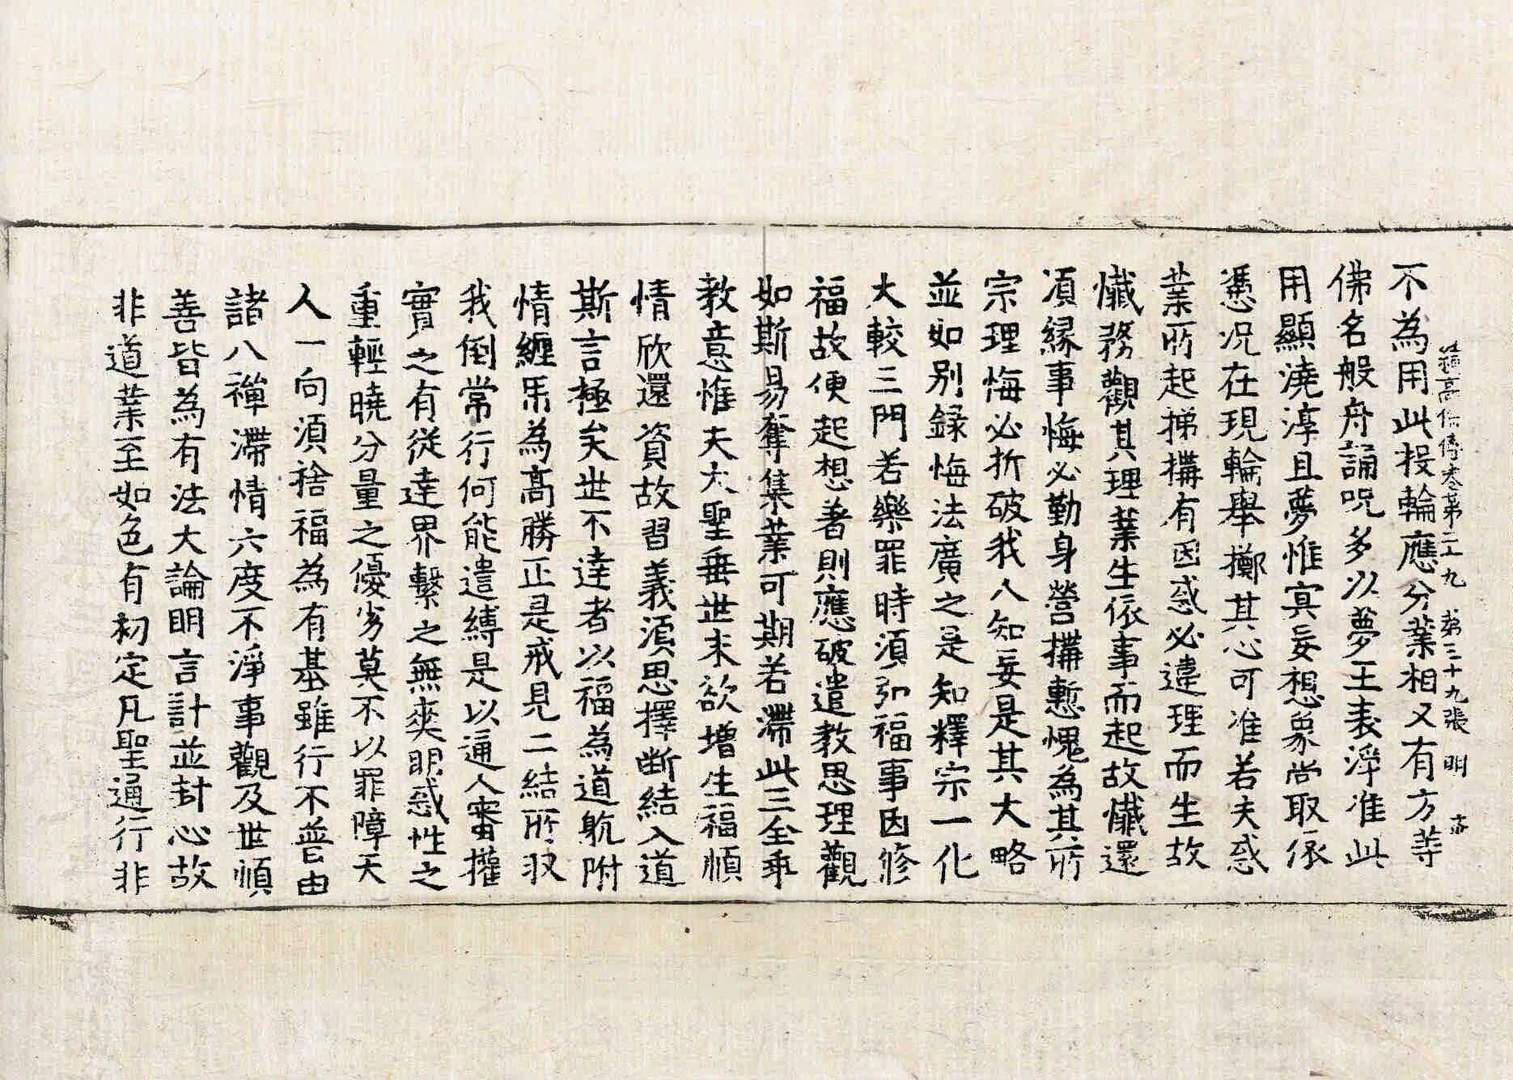 續高僧傳卷第二十九 第三十九張 明
不為用此投輪應分業相又有方等
佛名般舟誦呪多以夢王表淨准此
用顯澆淳且夢惟冥妄想象尚取依
憑況在現輪舉擲其心可准若夫惑
業所起揌搆有因惑必違理而生故
懺務觀其理業生依事而起故懺還
須縁事悔必勤身營搆慙愧為其所
宗理悔必折破我人知妄是其大略
並如別録悔法廣之是知釋宗一化
大較三門若樂罪時須弘福事因修
福故便起想著則應破遣教思理觀
如斯易奪集業可期若滯此三全乖
教意惟夫大聖垂世未欲増生福順
情欣還資故習義須思擇断結入道
斯言極矣世不達者以福為道躭附
情纏用為高勝正是戒見二結所収
我倒常行何能遣縛是以通人審權
實之有従達界繫之無爽明惑性之
重輕曉分量之優劣莫不以罪障天
人一向須捨福為有基雖行不普由
諸八禪滯情六度不淨事觀及世順
善皆為有法大論明言計並封心故
非道業至如色有初定凡聖通行非